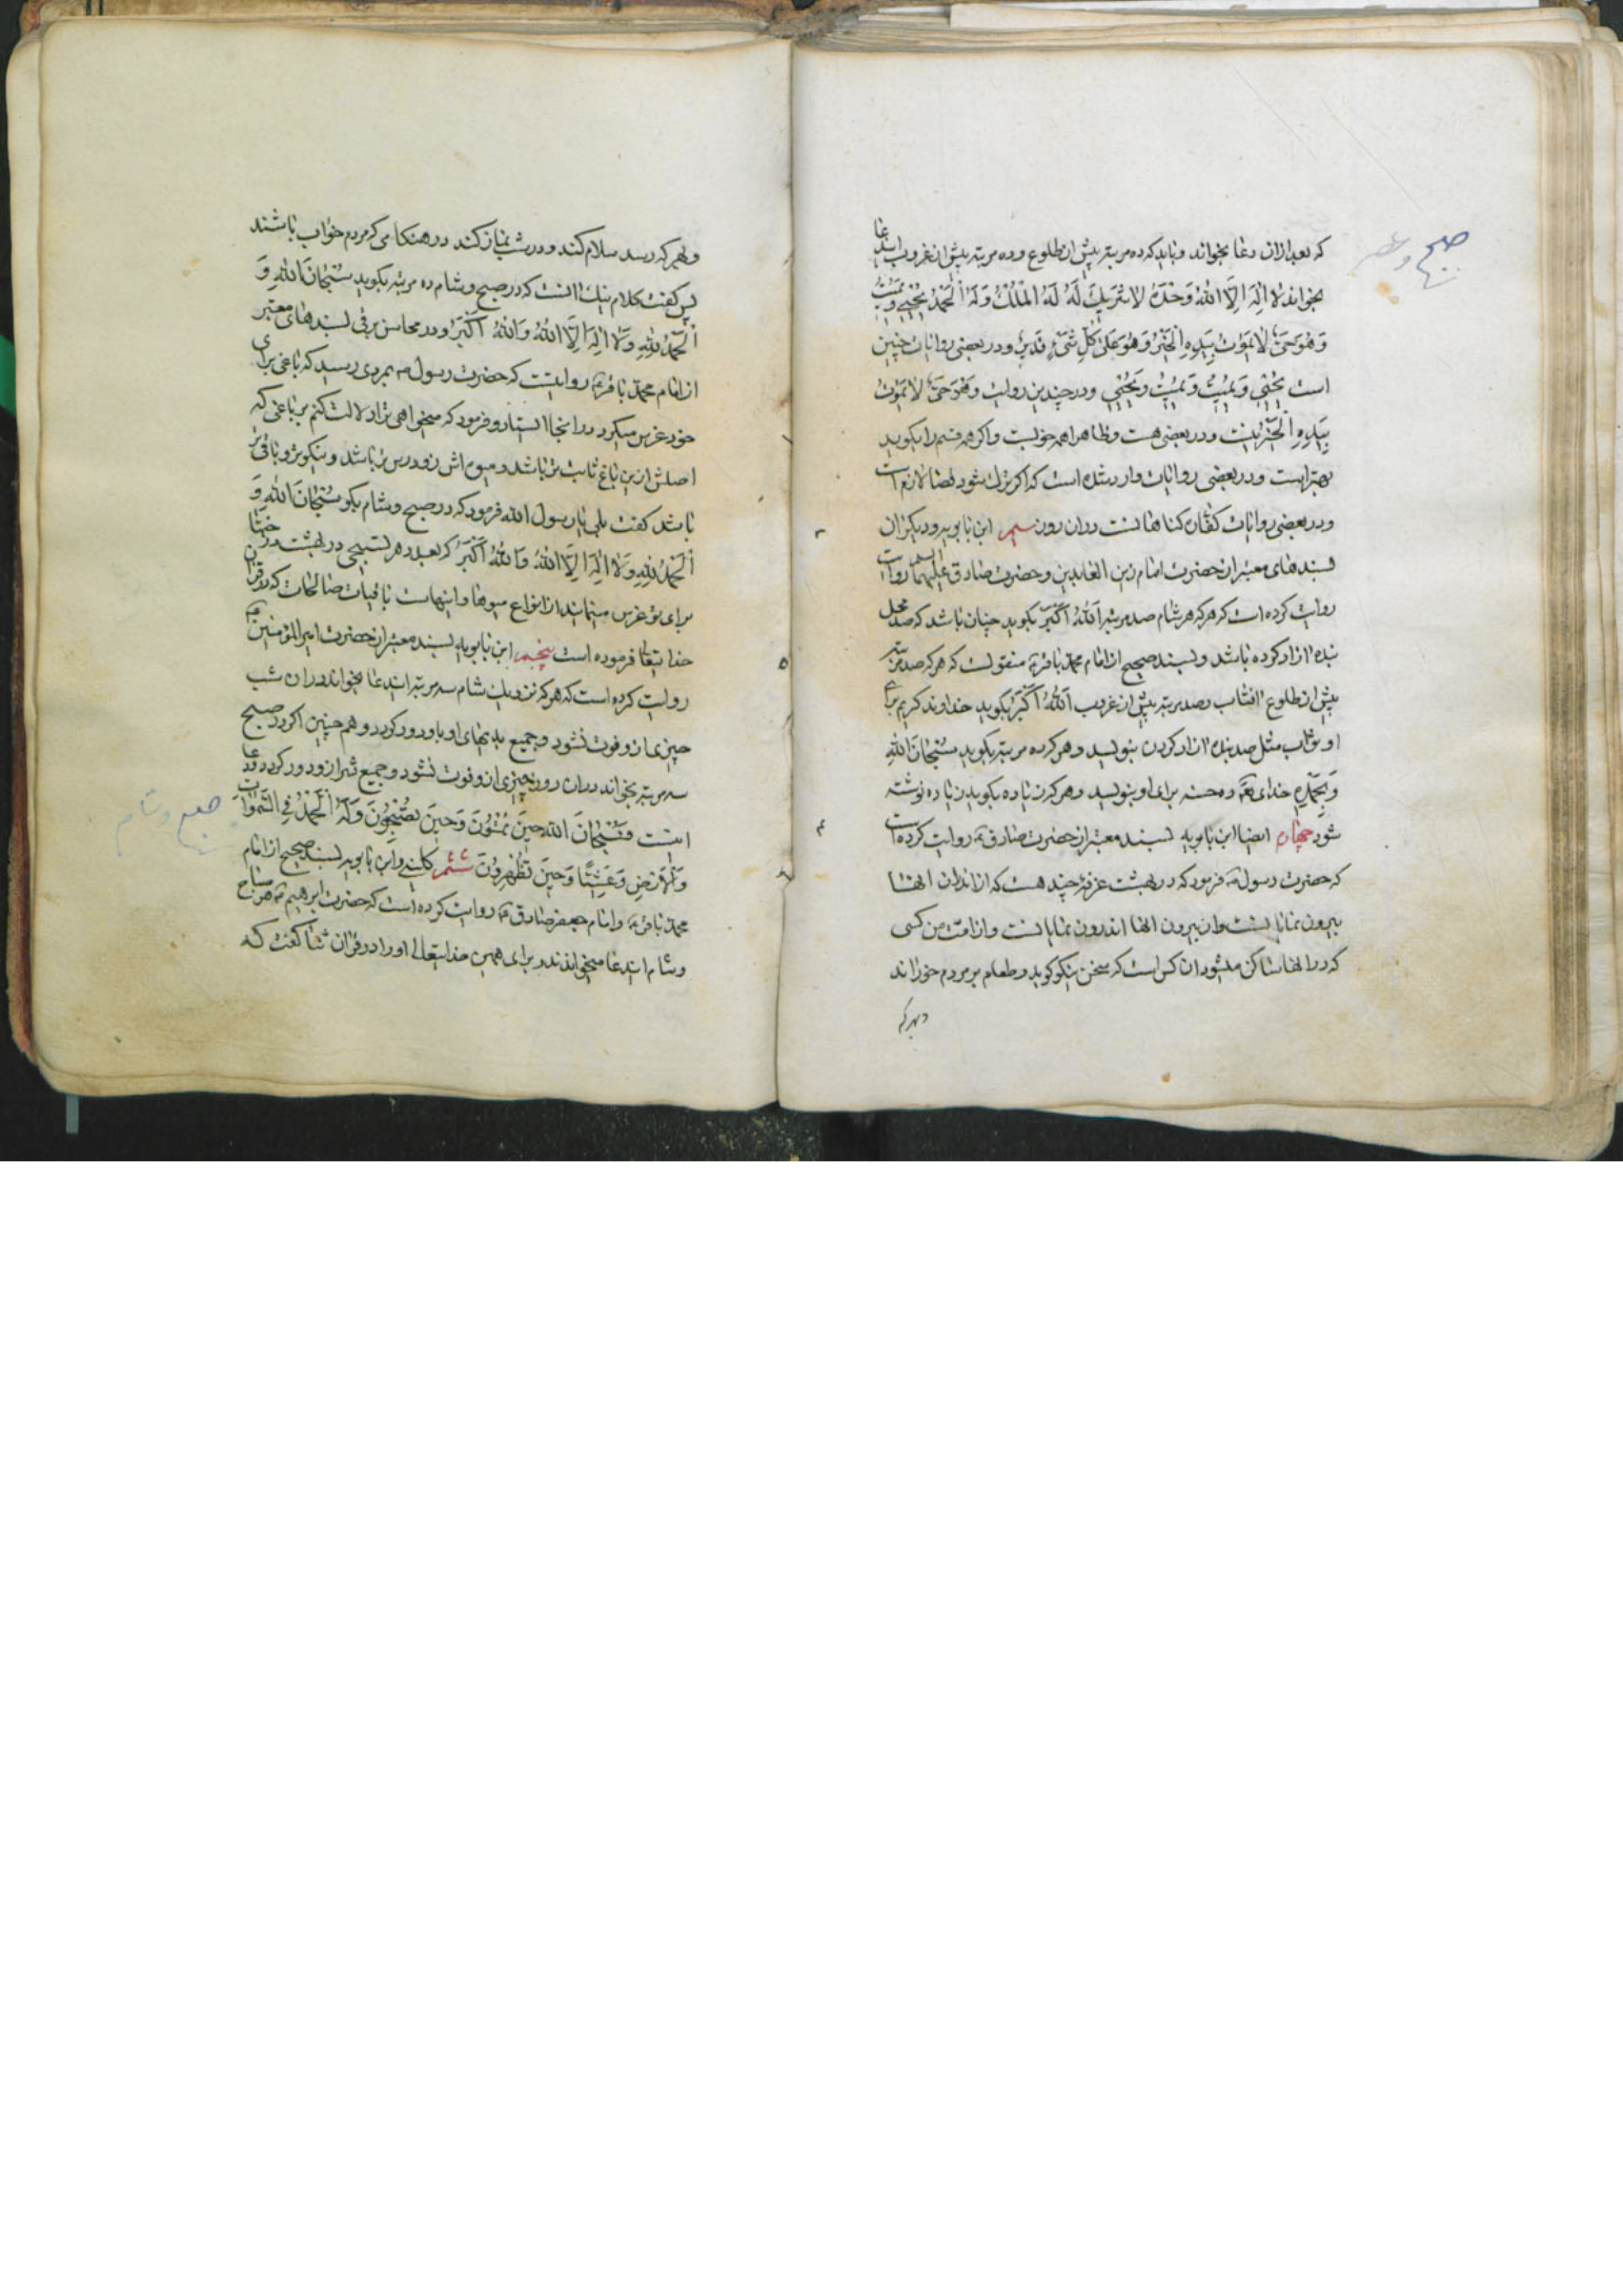 که بعد ازان دعا بخواند و باید که ده مرتبه پیش از طلوع و ده مرتبه پیش از غروب ایندعا
بخواند لا اِلهَ اِلَّا اللهُ وَحْدَهُ لا شَریكَ لَهُ لَهُ الْمُلْكُ وَلَهُ الْحَمْدُ یُحْیی وَیُمیتُ
وَهُوَ حَیٌّ لا یَمُوتُ بِیَدِهِ الْخَیْرُ وَهُوَ عَلی کُلِّ شَیْءٍ قَدیرٌ و در بعضی روایات چنین
است یُحْیی وَیُمیتُ وَیُمیتُ وَیُحْیی و در چندین روایت وَهُوَ حَیٌّ لا یَمُوتُ
بِیَدِهِ الْخَیْرُ نیست و در بعضی هست و ظاهرا همه خوبست و اکر همه قسم را بکوید
بهتر است و در بعضی روایات وارد شده است که اکر ترك شود قضا لازم است
و در بعضی روایات کفاره کناهانست دران روز سیم ابن بابویه و دیکران
بسندهای معتبر از حضرت امام زین العابدین و حضرت صادق علیهما السلم روایت
روایت کرده است که هر که هر شام صد مرتبه اَللهُ اَکْبَرُ بکوید چنان باشد که صد
بنده ازاد کرده باشد و بسند صحیح از امام محمد باقر ع منقولست که هر که صد مرتبه
پیش از طلوع افتاب و صد مرتبه پیش از غروب اَللهُ اَکْبَرُ بکوید خداوند کریم برای
او ثواب مثل صد بنده ازاد کردن بنویسد و هر که ده مرتبه بکوید سُبْحانَ اللهِ
وَبِحَمْدِهِ خدای تعه ده حسنه برای او بنویسد و هر که زیاده بکوید زیاده نوشته
شود چهارم ایضا ابن بابویه بسند معتبر از حضرت صادق ع روایت کرده است
که حضرت رسول ص فرمود که در بهشت غرفهٔ چند هست که از اندرون انها
بیرون نمایانست و از بیرون انها اندرون نمایانست و از امت من کسی
که در انها ساکن میشود ان کس است که سخن نیکو کوید و طعام بمردم خوراند
و بهر که
صبح و عصر
۳
۴
و بهر که رسد سلام کند و در شب نماز کند در هنکامی که مردم خواب باشند
پس کفت کلام نیك انست که در صبح و شام ده مرتبه بکوید سُبْحانَ اللهِ وَ
الْحَمْدُ لِلّهِ وَلا اِلهَ اِلَّا اللهُ وَاللهُ اَکْبَرُ و در محاسن برقی بسندهای معتبر
از امام محمد باقر ع روایتست که حضرت رسول ص بمردی رسید که باغی برای
خود غرس میکرد در انجا ایستاد و فرمود که میخواهی ترا دلالت کنم بر باغی که
اصلش ازین باغ ثابت تر باشد و میوه اش زودرس تر باشد و نیکوتر و باقی تر
باشد کفت بلی یا رسول الله فرمود که در صبح و شام بکو سُبْحانَ اللهِ وَ
الْحَمْدُ لِلّهِ وَلا اِلهَ اِلَّا اللهُ وَاللهُ اَکْبَرُ که بعدد هر تسبیحی در بهشت درختها
برای تو غرس مینمایند از انواع میوها و اینهاست باقیات صالحات که در قران
خدا یتعا فرموده است پنجم ابن بابویه بسند معتبر از حضرت امیر المؤمنین ع
روایت کرده است که هر که نزدیك شام سه مرتبه ایندعا بخواند دران شب
چیزی ازو فوت نشود و جمیع بدیهای او باو دور کردد و هم چنین اکر در صبح
سه مرتبه بخواند دران روز چیزی ازو فوت نشود و جمیع شر ازو دور کردد و دعا
اینست فَسُبْحانَ اللهِ حینَ تُمْسُونَ وَحینَ تُصْبِحُونَ وَلَهُ الْحَمْدُ فِی السَّمواتِ
وَالْاَرْضِ وَعَشِیًّا وَحینَ تُظْهِرُونَ ششم کلینی و ابن بابویه بسند صحیح از امام
محمد باقر ع و امام جعفر صادق ع روایت کرده است که حضرت ابرهیم ع هر صباح
و شام ایندعا میخواندند و برای همین خدا یتعالی او را در قران ثنا کفت که
صبح و شام
۵